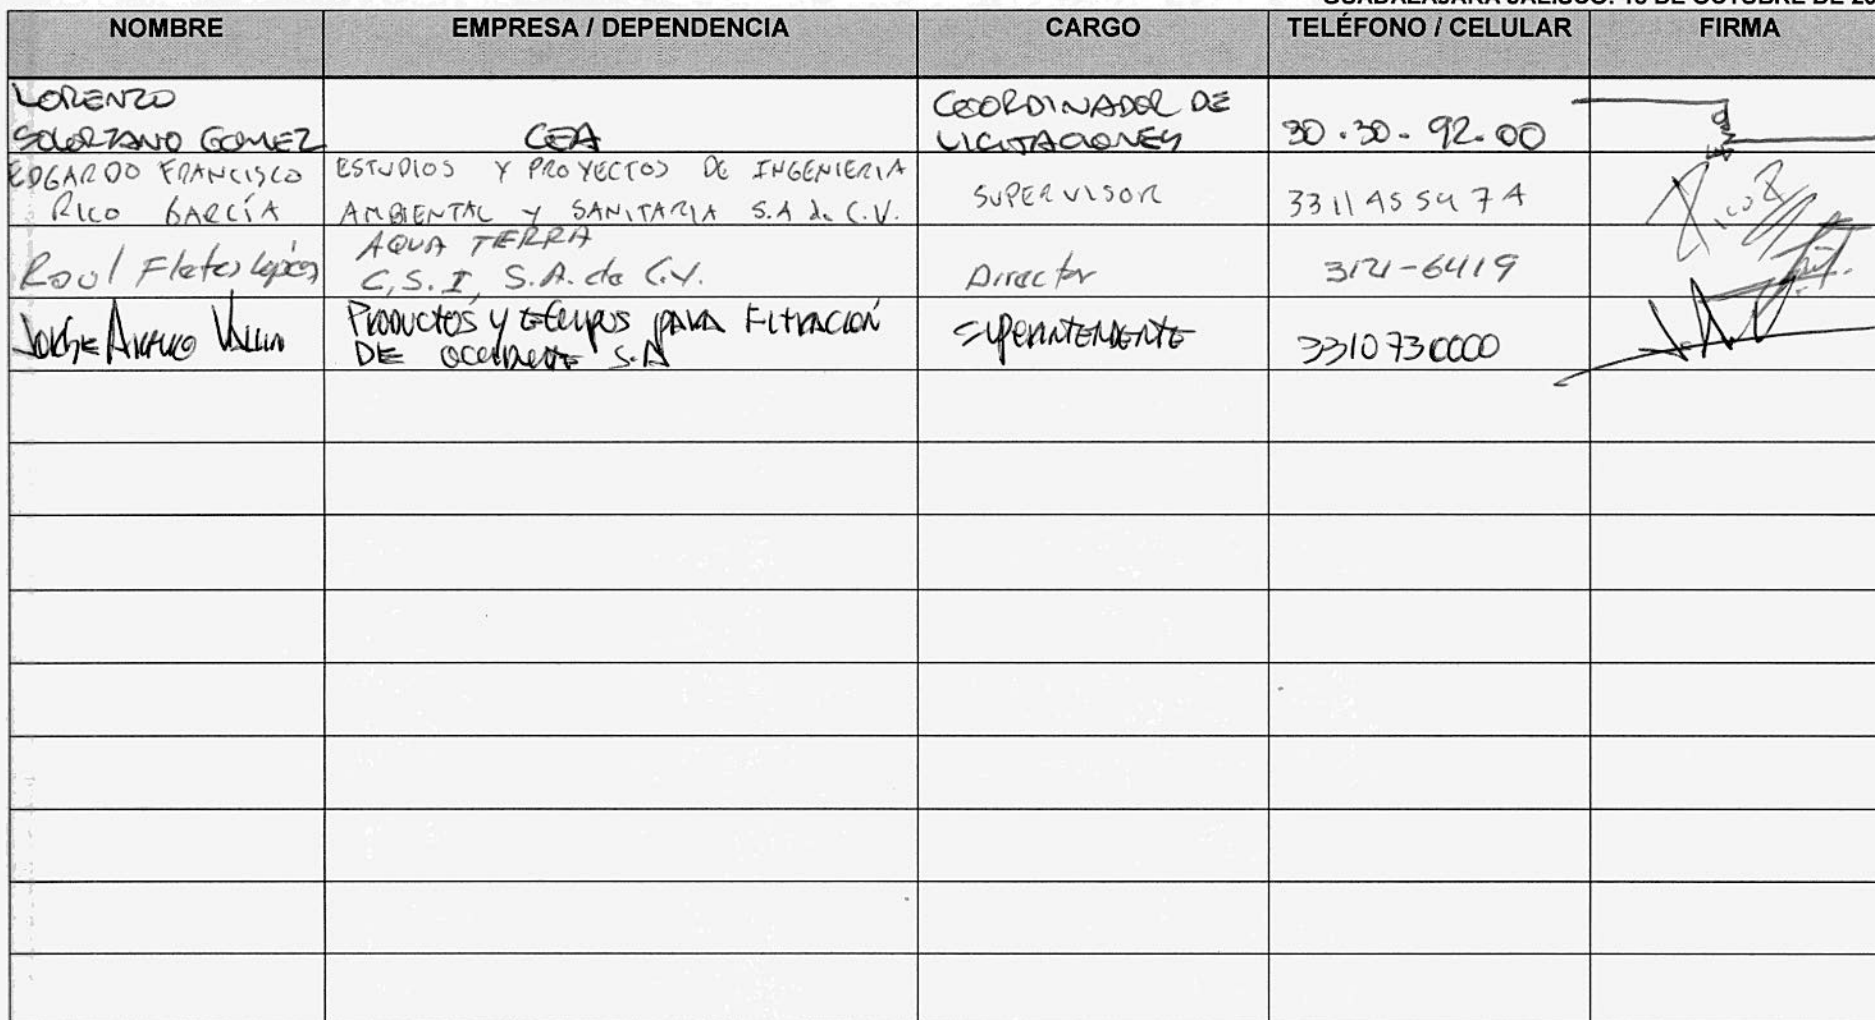 NOMBRE EMPRESA / DEPENDENCIA CARGO TELÉFONO / CELULAR FIRMA
LORENZO
SOLORZANO GOMEZ
CEA
COORDINADOR DE
LICITACIONES
30.30-92.00
EDGARDO FRANCISCO
RICO GARCÍA
ESTUDIOS Y PROYECTOS DE INGENIERIA
AMBIENTAL Y SANITARIA S.A de C.V.
SUPERVISOR
Raul Fletes López
AQUA TERRA
C,S.I, S.A. de C.V.
Director
3121-6419
JORGE ARTURO
PRODUCTOS Y EQUIPOS PARA FILTRACIÓN
DE OCCIDENTE S.A
SUPERINTENDENTE
3310730000